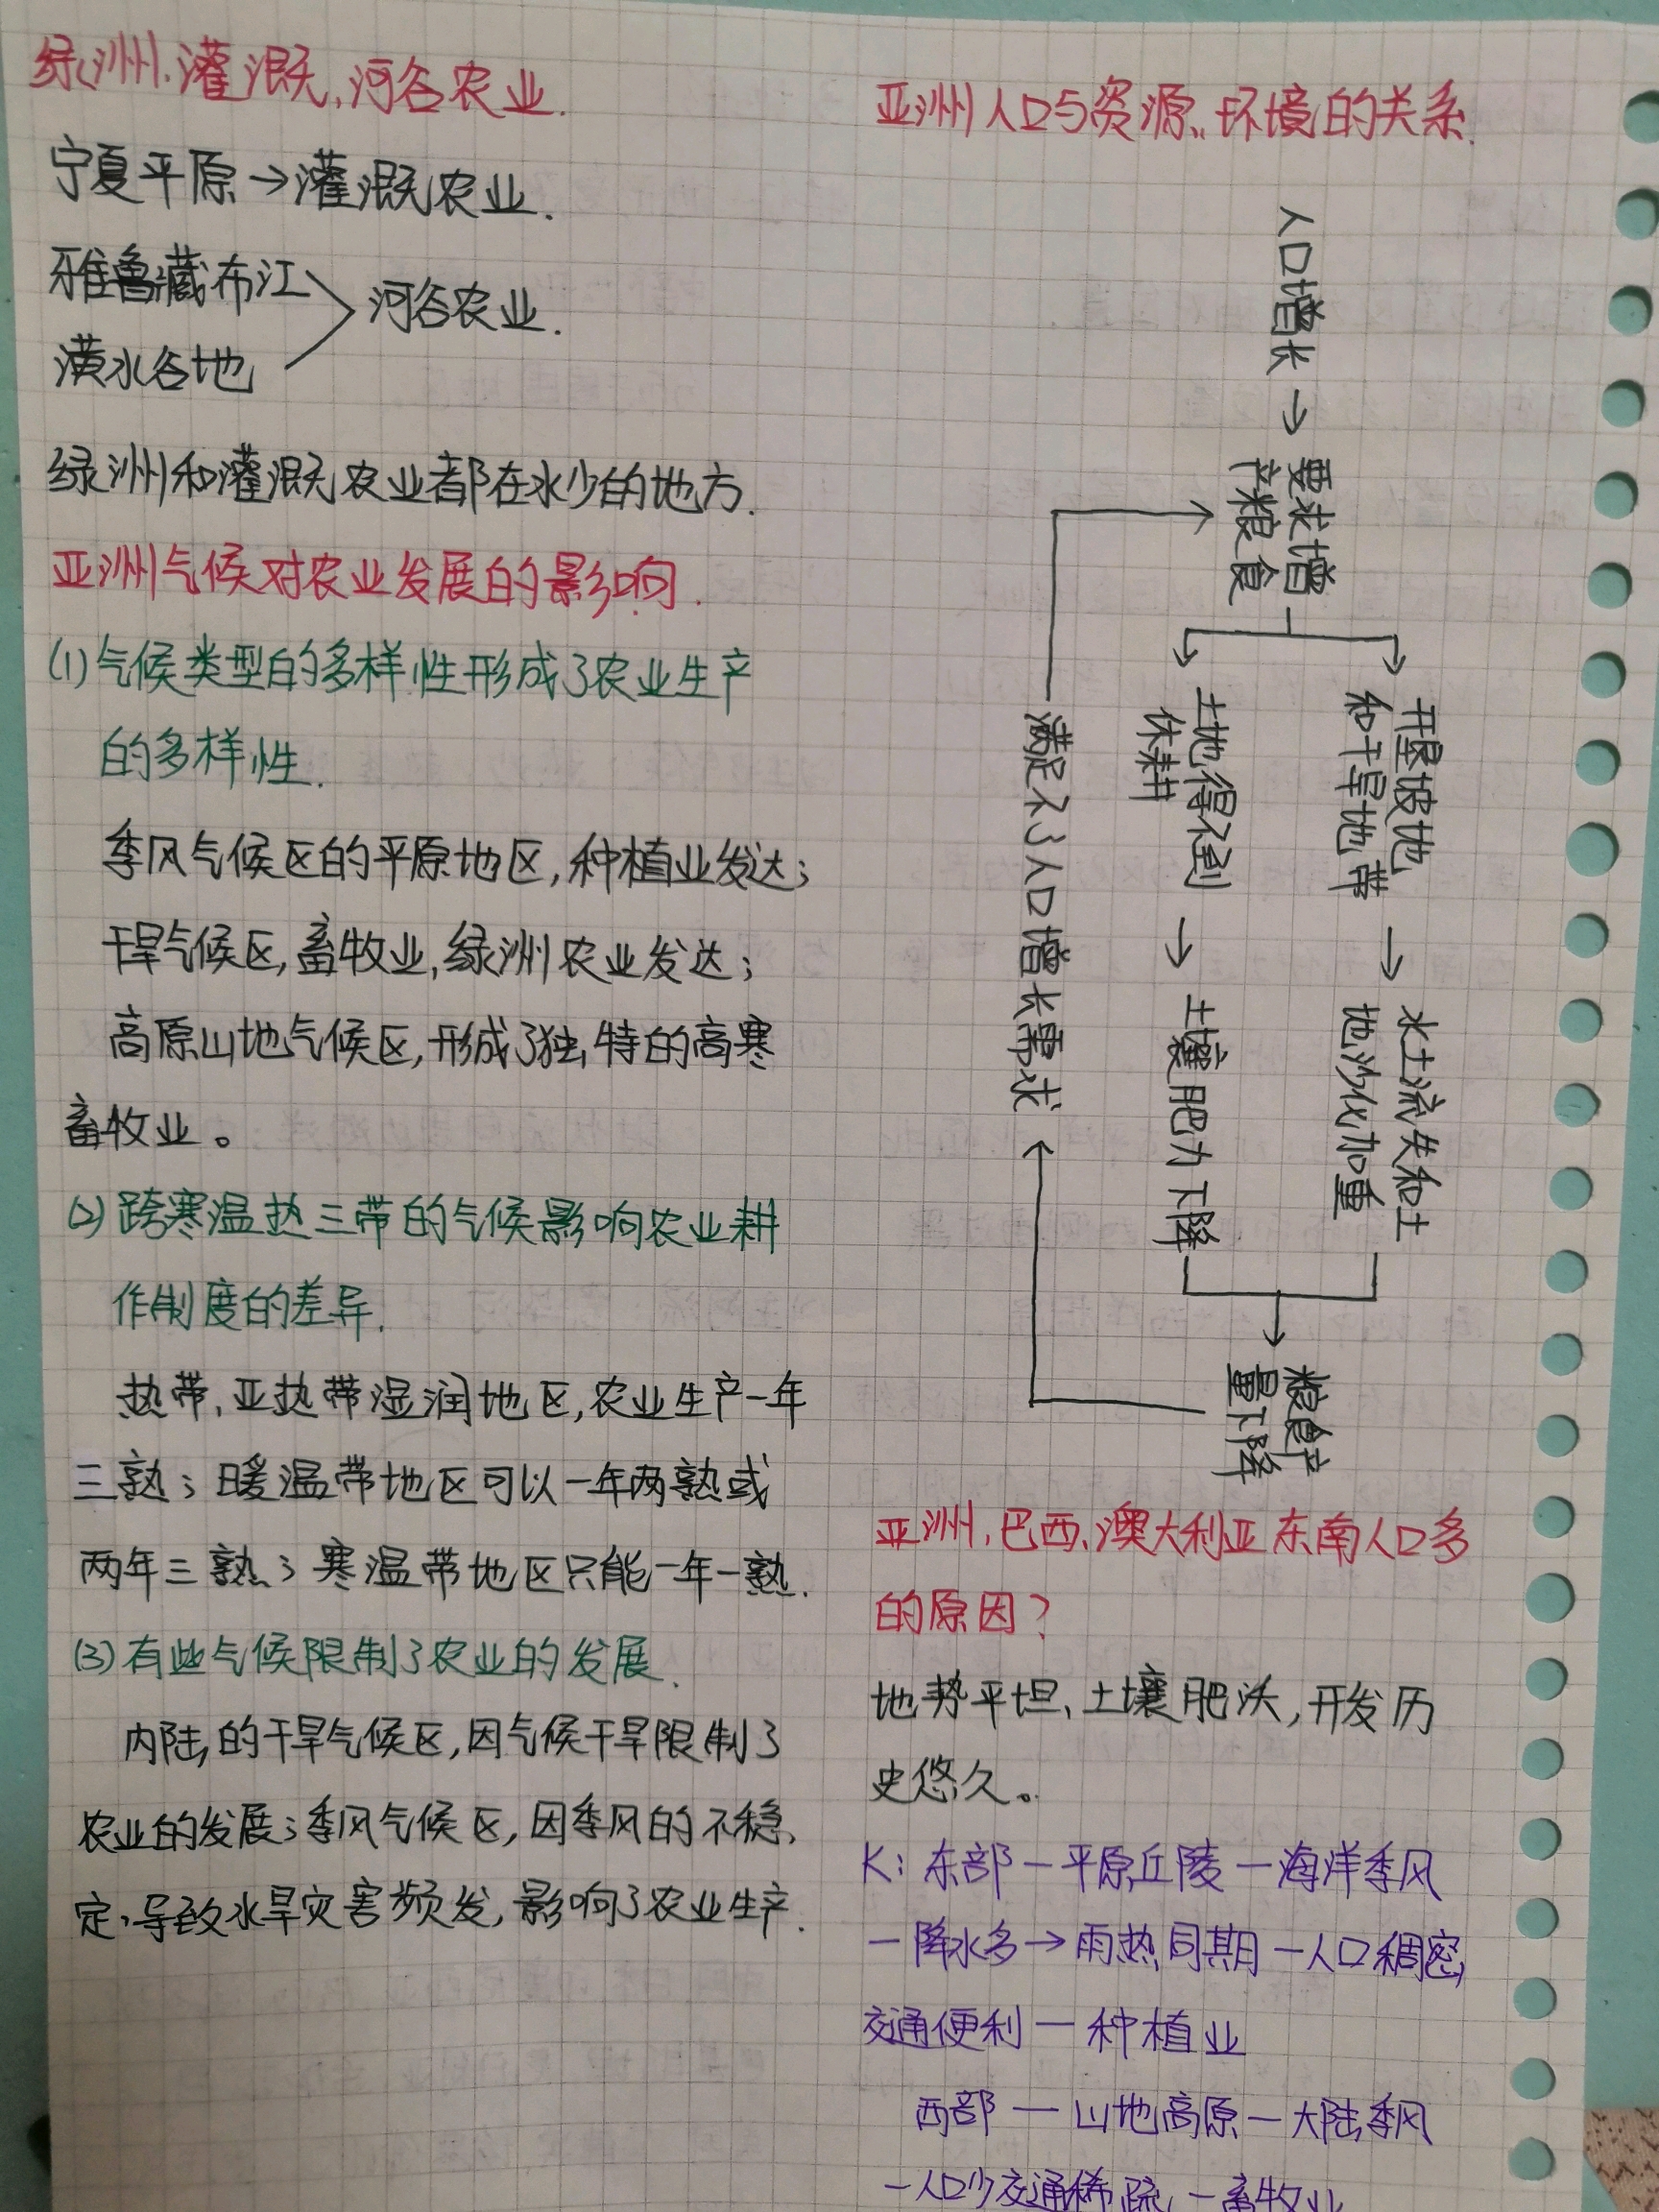 绿洲、灌溉、河谷农业.
宁夏平原→灌溉农业.
雅鲁藏布江
湟水谷地
河谷农业.
绿洲和灌溉农业都在水少的地方.
亚洲气候对农业发展的影响.
(1)气候类型的多样性形成了农业生产
的多样性.
季风气候区的平原地区,种植业发达;
干旱气候区,畜牧业,绿洲农业发达;
高原山地气候区,形成了独特的高寒
畜牧业。
(2)跨寒温热三带的气候影响农业耕
作制度的差异.
热带、亚热带湿润地区,农业生产一年
三熟;暖温带地区可以一年两熟或
两年三熟;寒温带地区只能一年一熟.
(3)有些气候限制了农业的发展.
内陆的干旱气候区,因气候干旱限制了
农业的发展;季风气候区,因季风的不稳
定,导致水旱灾害频发,影响了农业生产.
亚洲人口与资源、环境的关系.
人口增长→
要求增
产粮食
开垦坡地
和干旱地带
→
水土流失和土
地沙化加重
土地得不到
休耕
→
土壤肥力下降
粮食产
量下降
满足不了人口增长需求
亚洲、巴西、澳大利亚东南人口多
的原因?
地势平坦、土壤肥沃,开发历
史悠久。
K:东部—平原丘陵—海洋季风
—降水多→雨热同期—人口稠密
交通便利—种植业
西部—山地高原—大陆季风
—人口少交通稀疏—畜牧业